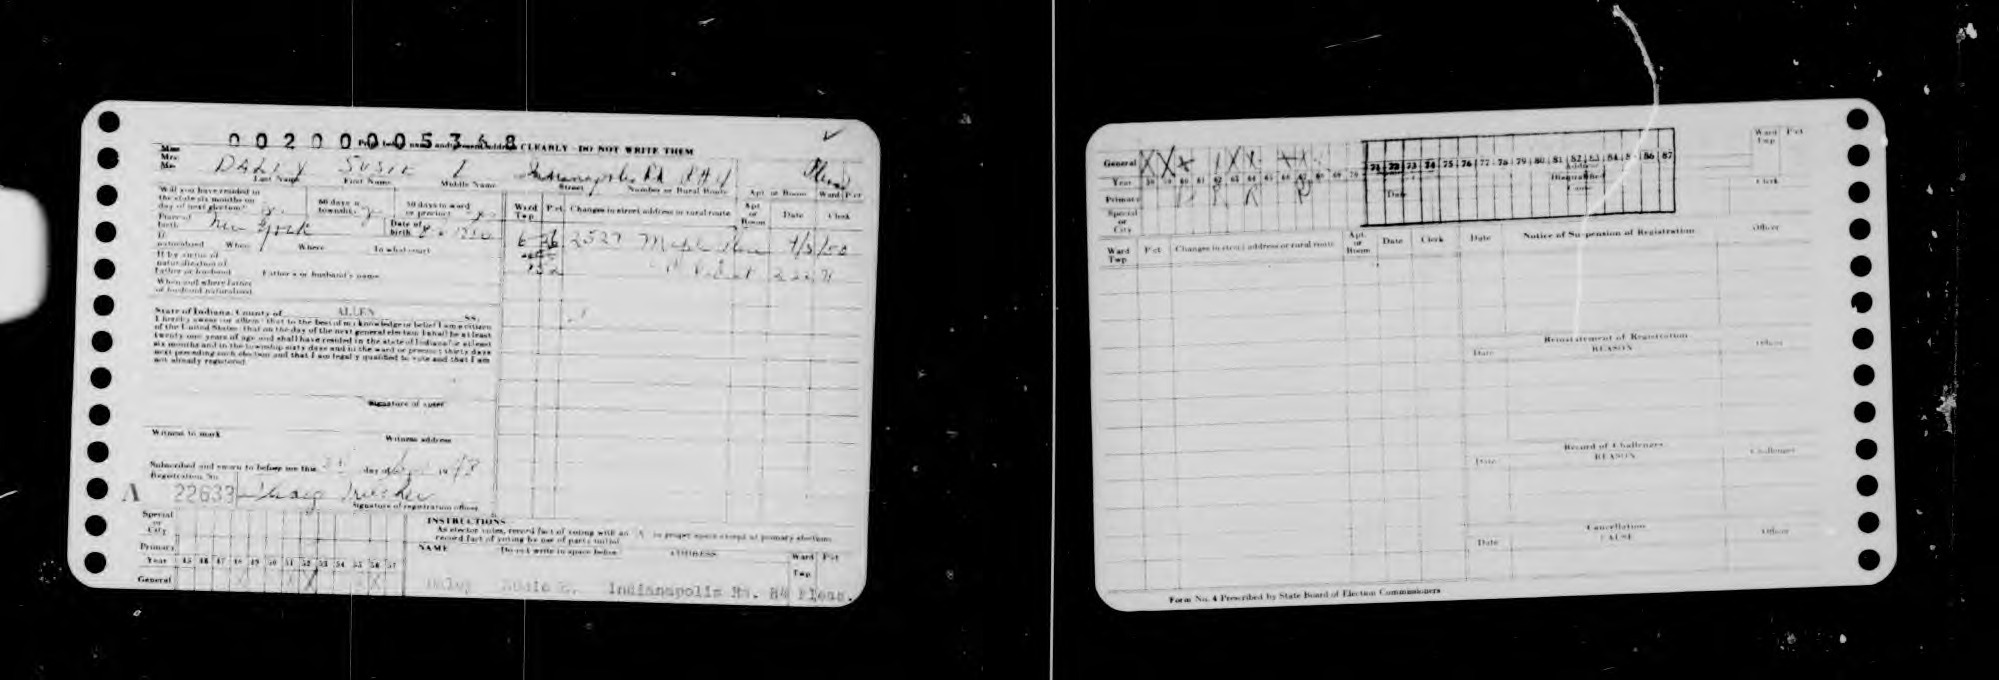 00200005368
Print both name and address CLEARLY - DO NOT WRITE THEM
Miss
Mrs.
Mr.
DALEY SUSIE E Indianapolis Rd R#4 Pleas
Last Name First Name Middle Name Street Number or Rural Route Apt. or Room Ward Pct
Will you have resided in
the state six months on
day of next election?
60 days in
township
30 days in ward
or precinct yes
Ward
Twp Pct Changes in street address or rural route Apt.
or
Room Date Clerk
Place of
birth New York
Date of
birth
6 26 2527 Maple
If
naturalized When Where In what court
If by virtue of
naturalization of
father or husband Father's or husband's name
When and where father
or husband naturalized
State of Indiana, County of ALLEN SS.
I hereby swear (or affirm) that to the best of my knowledge or belief I am a citizen
of the United States; that on the day of the next general election I shall be at least
twenty-one years of age and shall have resided in the state of Indiana for at least
six months and in the township sixty days and in the ward or precinct thirty days
next preceding such election and that I am legally qualified to vote and that I am
not already registered.
Signature of voter
Witness to mark Witness address
Subscribed and sworn to before me this day of 19
Registration No.
A 22633
Signature of registration officer
Special
or
City
Primary
Year 45 46 47 48 49 50 51 52 53 54 55 56 57
General X X X X X
INSTRUCTIONS
As elector votes, record fact of voting with an X in proper space except at primary elections
record fact of voting by use of party initial
NAME Do not write in space below ADDRESS Ward
Twp Pct
Daley Susie E. Indianapolis Rd. R4 Pleas.
General X X X X X X
Year 58 59 60 61 62 63 64 65 66 67 68 69 70 71 72 73 74 75 76 77 78 79 80 81 82 83 84 85 86 87
Primary R R R
Special
or
City
Ward
Twp Pct
Clerk
Ward
Twp Pct Changes in street address or rural route Apt.
or
Room Date Clerk
Date Notice of Suspension of Registration Officer
Reinstatement of Registration
Date REASON Officer
Record of Challenges
Date REASON Challenger
Cancellation
Date CAUSE Officer
Form No. 4 Prescribed by State Board of Election Commissioners